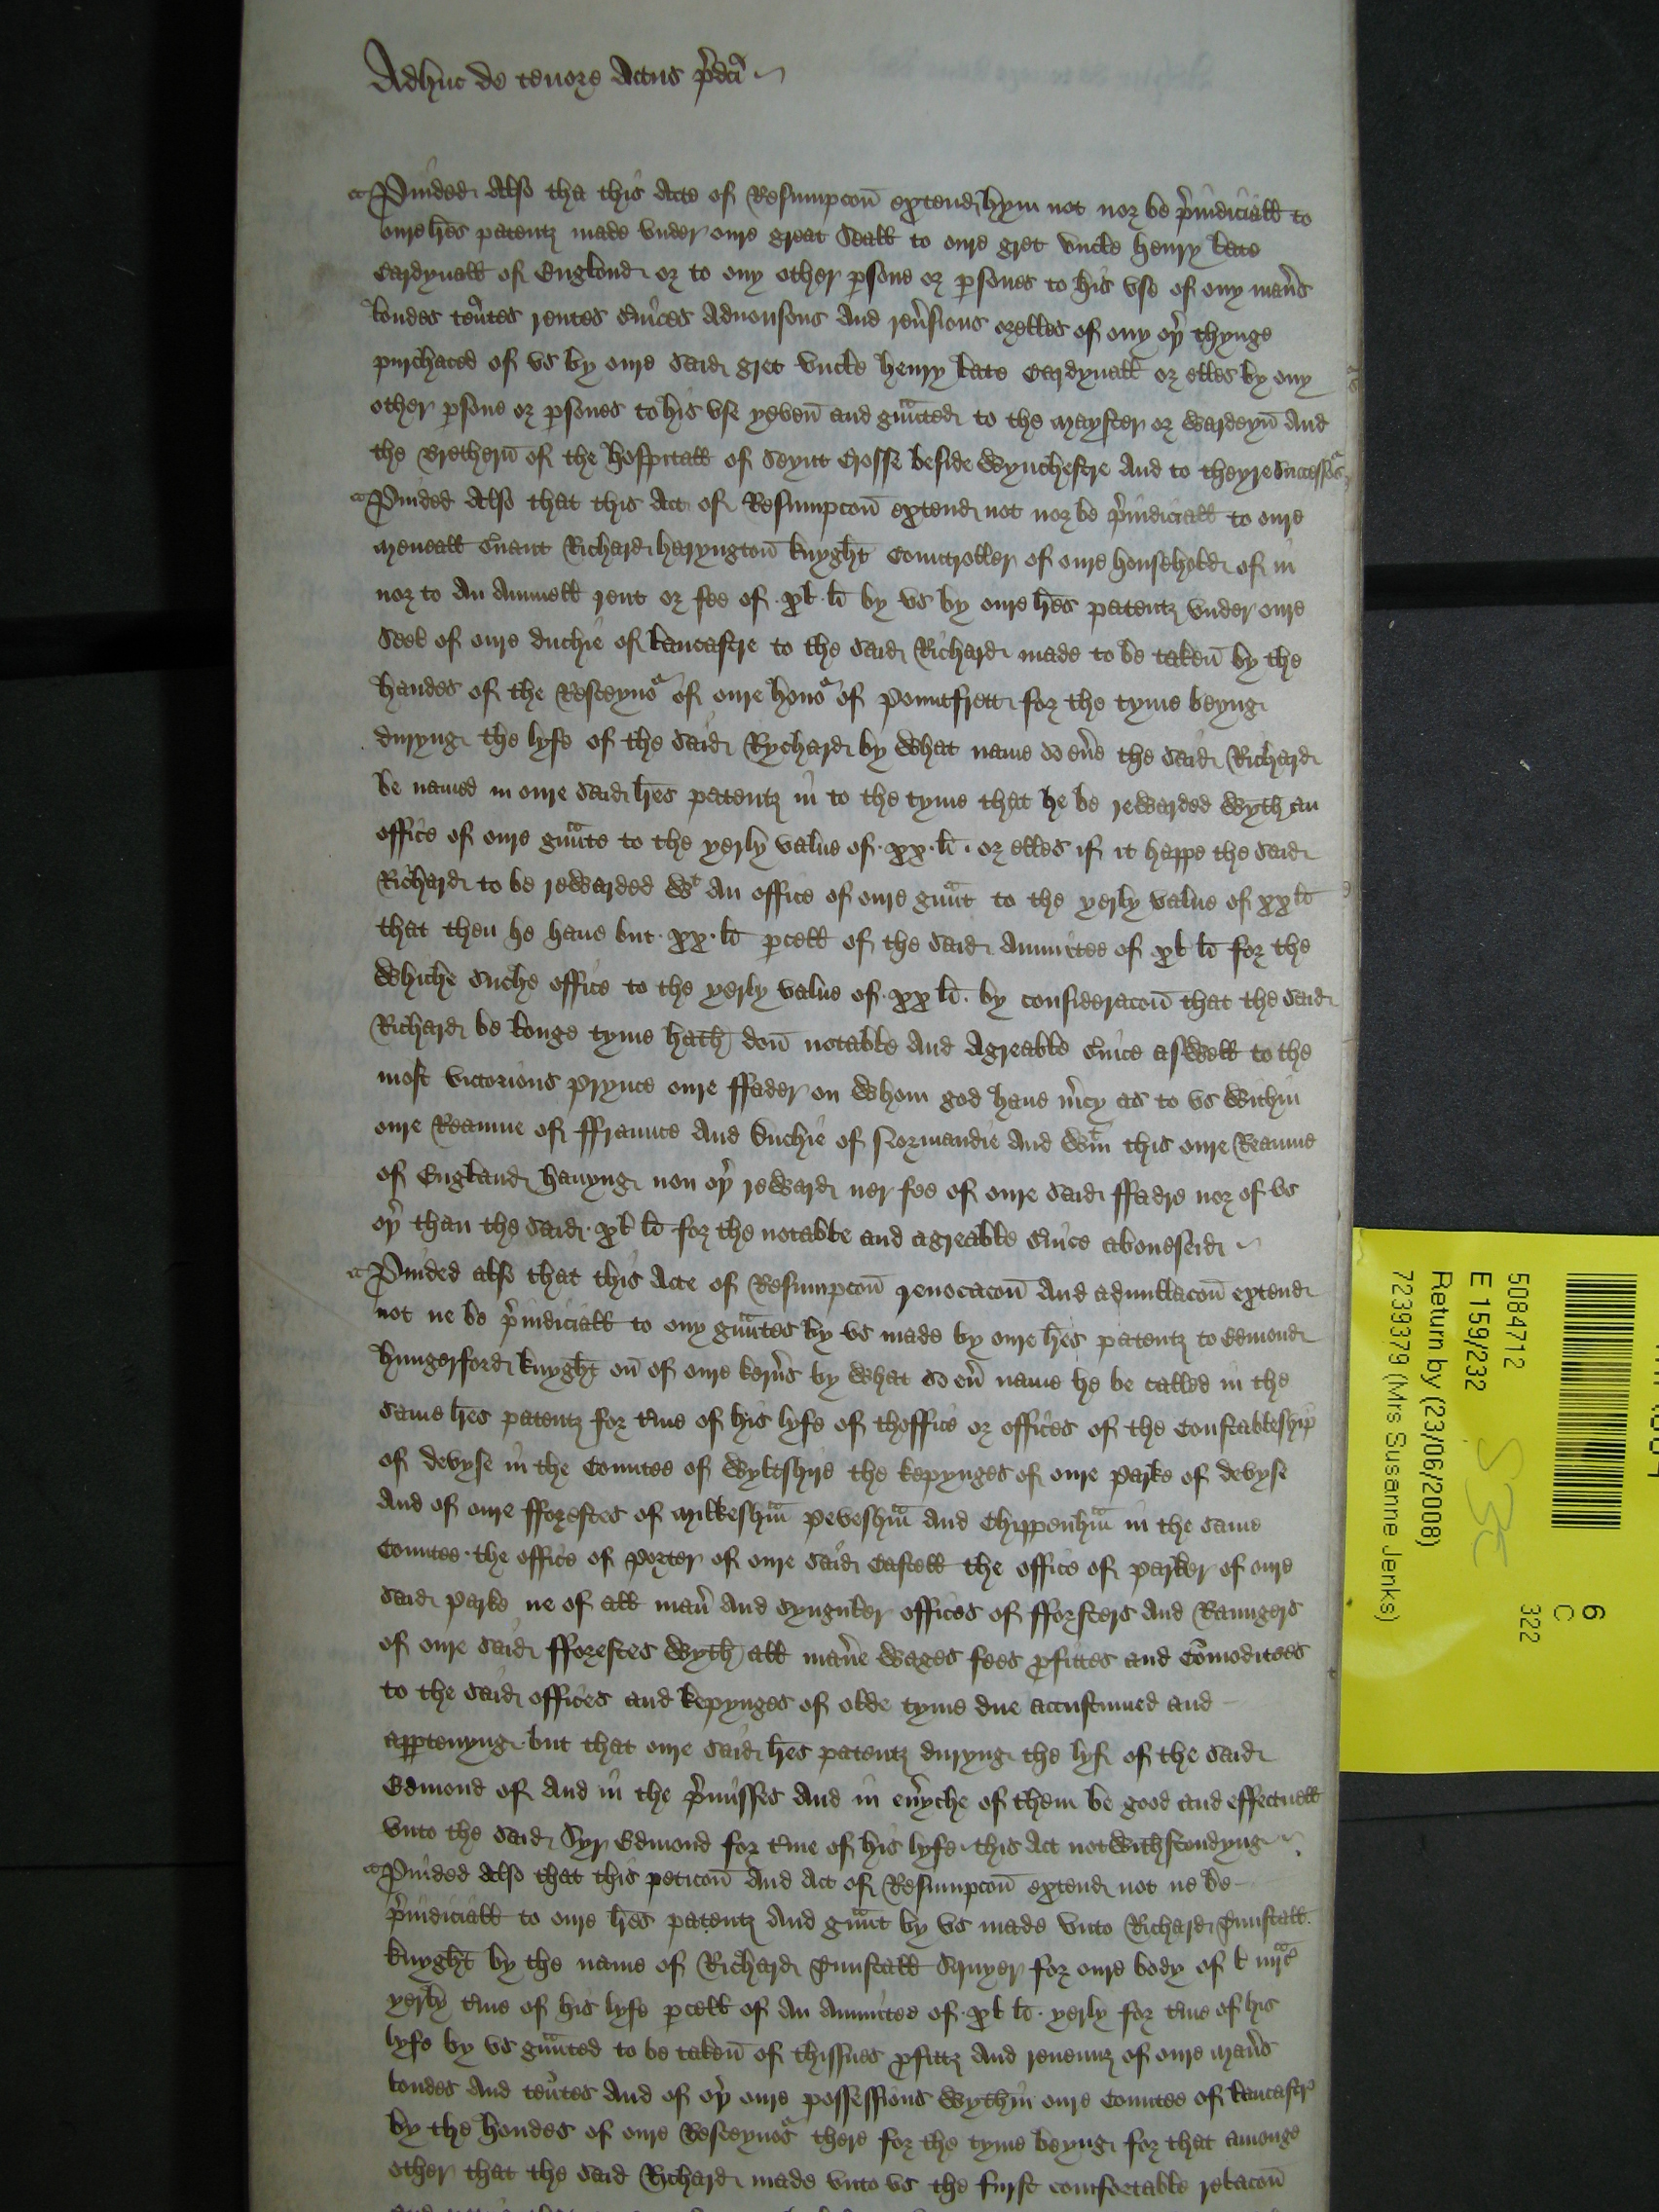 Adhuc de tenore Actus p̃dc̃i
Puided Also tha this Acte of Resumpcoũ extend hym not nor be p̃iudiciall to
oure l̃res patentz made vnder oure great Seall to oure gret vncle Henry late
Cardynall of Englond or to ony other psone or psones to his vse of ony mañs
londes teñtes rentes s̃uices Aduousons And reũsions orelles of ony oþ̃ thynge
purchaced of vs by oure Said gret vncle Henry late Cardynall or elles by ony
other psone or psones to his vse yeveñ and gũnted to the Mayster or Wardeyñ And
the Bretherñ of the Hospitall of Seynt Crosse beside Wynchestre And to theyre Successos
Puided Also that this Act of Resumpcoũ extend not nor be p̃iudiciall to oure
Meneall s̃uant Richard Haryngtoñ knyght Comtroller of oure Household of in
nor to An Annuell rent or fee of .xl. li by vs by oure l̃res patentz vnder oure
Seel of oure duchie of Lancastre to the Said Richard made to be takeñ by the
Handes of the Resceyuor of oure Honor of Pountfrett for the tyme beyng
duryng the lyfe of the Said Rychard by What name so eũe the Said Richard
be named in oure Said l̃res patentz in to the tyme that he be reWarded Wyth an
office of oure gũnte to the yerly value of .xx. li. or elles if it happe the Said
Richard to be reWarded Wt An office of oure gũnt to the yerly value of xx li
that then he haue but .xx. li pcell of the Said Annuitee of xl li for the
Whiche Suche office to the yerly value of .xx li. by consideracoũ that the Said
Richard be longe tyme hath doñ notable And Agreable s̃uice asWell to the
most victorious Prynce oure ffader on Whom god haue m̃cy as to vs Within
oure Reaume of ffraunce And Duchie of Normandie And Wtin this oure Reaume
of England Hauyng non oþ̃ reWard ner fee of oure Said ffadre nor of vs
oþ̃ than the Said .xl li for the notable and agreable s̃uice aboueseid
Puided also that this Acte of Resumpcoũ reuocacoũ And adnullacoũ extend
not ne be p̃iudiciall to ony gũntes by vs made by oure l̃res patentz to Edmond
Hungerford knyght oñ of oure kerũs by What so eũ name he be called in the
Same l̃res patentz for t̃me of his lyfe of thoffice or offices of the Constableship
of devyse in the Countee of Wyltshire the kepynges of oure Parke of devyse
And of oure fforestes of Milkeshm̃ Peveshm̃ And Chippenhm̃ in the Same
Countee the office of Porter of oure Said Castell the office of Parker of oure
Said Parke ne of all mañ And Synguler offices of fforsters And Raungers
of oure Said fforestes Wyth all mañe Wages fees profittes and Com̃oditees
to the Said offices and kepynges of olde tyme due accustumed and
apptenyng but that oure Said l̃res patentz duryng the lyf of the Said
Edmond of And in the p̃misses And in eũyche of them be good and effectuell
vnto the Said Syr Edmond for t̃me of his lyfe this Act notWithstondyng
Puided Also that this peticoũ And Act of Resumpcoũ extend not ne be
p̃iudiciall to oure l̃res patentz And gũnt by vs made vnto Richard Tunstall
knyght by the name of Richard Tunstall Squyer for oure body of l m̃rc
yerly t̃me of his lyfe pcell of An Annuitee of .xl li. yerly for t̃me of his
lyfe by vs gũnted to be takeñ of thissues profittz And reuenuz of oure Mañs
londes And teñtes And of oþ̃ oure possessions Wythin oure Countee of Lancastr
by the Hondes of oure Resceyuor there for the tyme beyng for that amonge
other that the Said Richard made vnto vs the furst comfortable relacoũ